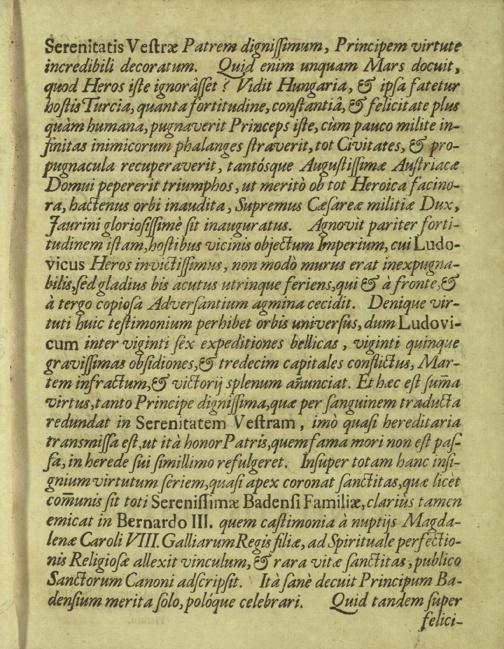 Serenitatis Vestræ Patrem dignissimum, Principem virtute
incredibili decoratum. Quid enim unquam Mars docuit,
quod Heros iste ignorâsset? Vidit Hungaria, & ipsa fatetur
hostis Turcia, quanta fortitudine, constantiâ, & felicitate plus
quàm humana, pugnaverit Princeps iste, cùm pauco milite in-
finitas inimicorum phalanges straverit, tot Civitates, & pro-
pugnacula recuperaverit, tantósque Augustissimæ Austriacæ
Domui pepererit triumphos, ut meritò ob tot Heroica facino-
ra, hactenus orbi inaudita, Supremus Cæsareæ militiæ Dux,
Jaurini gloriosissimè sit inauguratus. Agnovit pariter forti-
tudinem istam, hostibus vicinis objectum Imperium, cui Ludo-
vicus Heros invictissimus, non modò murus erat inexpugna-
bilis, sed gladius bis acutus utrinque feriens, qui & à fronte, &
à tergo copiosa Adversantium agmina cecidit. Denique vir-
tuti huic testimonium perhibet orbis universus, dum Ludovi-
cum inter viginti sex expeditiones bellicas, viginti quinque
gravissimas obsidiones, & tredecim capitales conflictus, Mar-
tem infractum, & victorij splenum añunciat. Et hæc est sum̃a
virtus, tanto Principe dignissima, quæ per sanguinem traducta
redundat in Serenitatem Vestram, imò quasi hereditaria
transmissa est, ut ità honor Patris, quem fama mori non est pas-
sa, in herede sui simillimo refulgeret. Insuper totam hanc insi-
gnium virtutum seriem, quasi apex coronat sanctitas, quæ licet
com̃unis sit toti Serenissimæ Badensi Familiæ, clariùs tamen
emicat in Bernardo III. quem castimonia à nuptijs Magda-
lenæ Caroli VIII. Galliarum Regis filiæ, ad Spirituale perfectio-
nis Religiosæ allexit vinculum, & rara vitæ sanctitas, publico
Sanctorum Canoni adscripsit. Ità sanè decuit Principum Ba-
densium merita solo, polóque celebrari. Quid tandem super
felici-